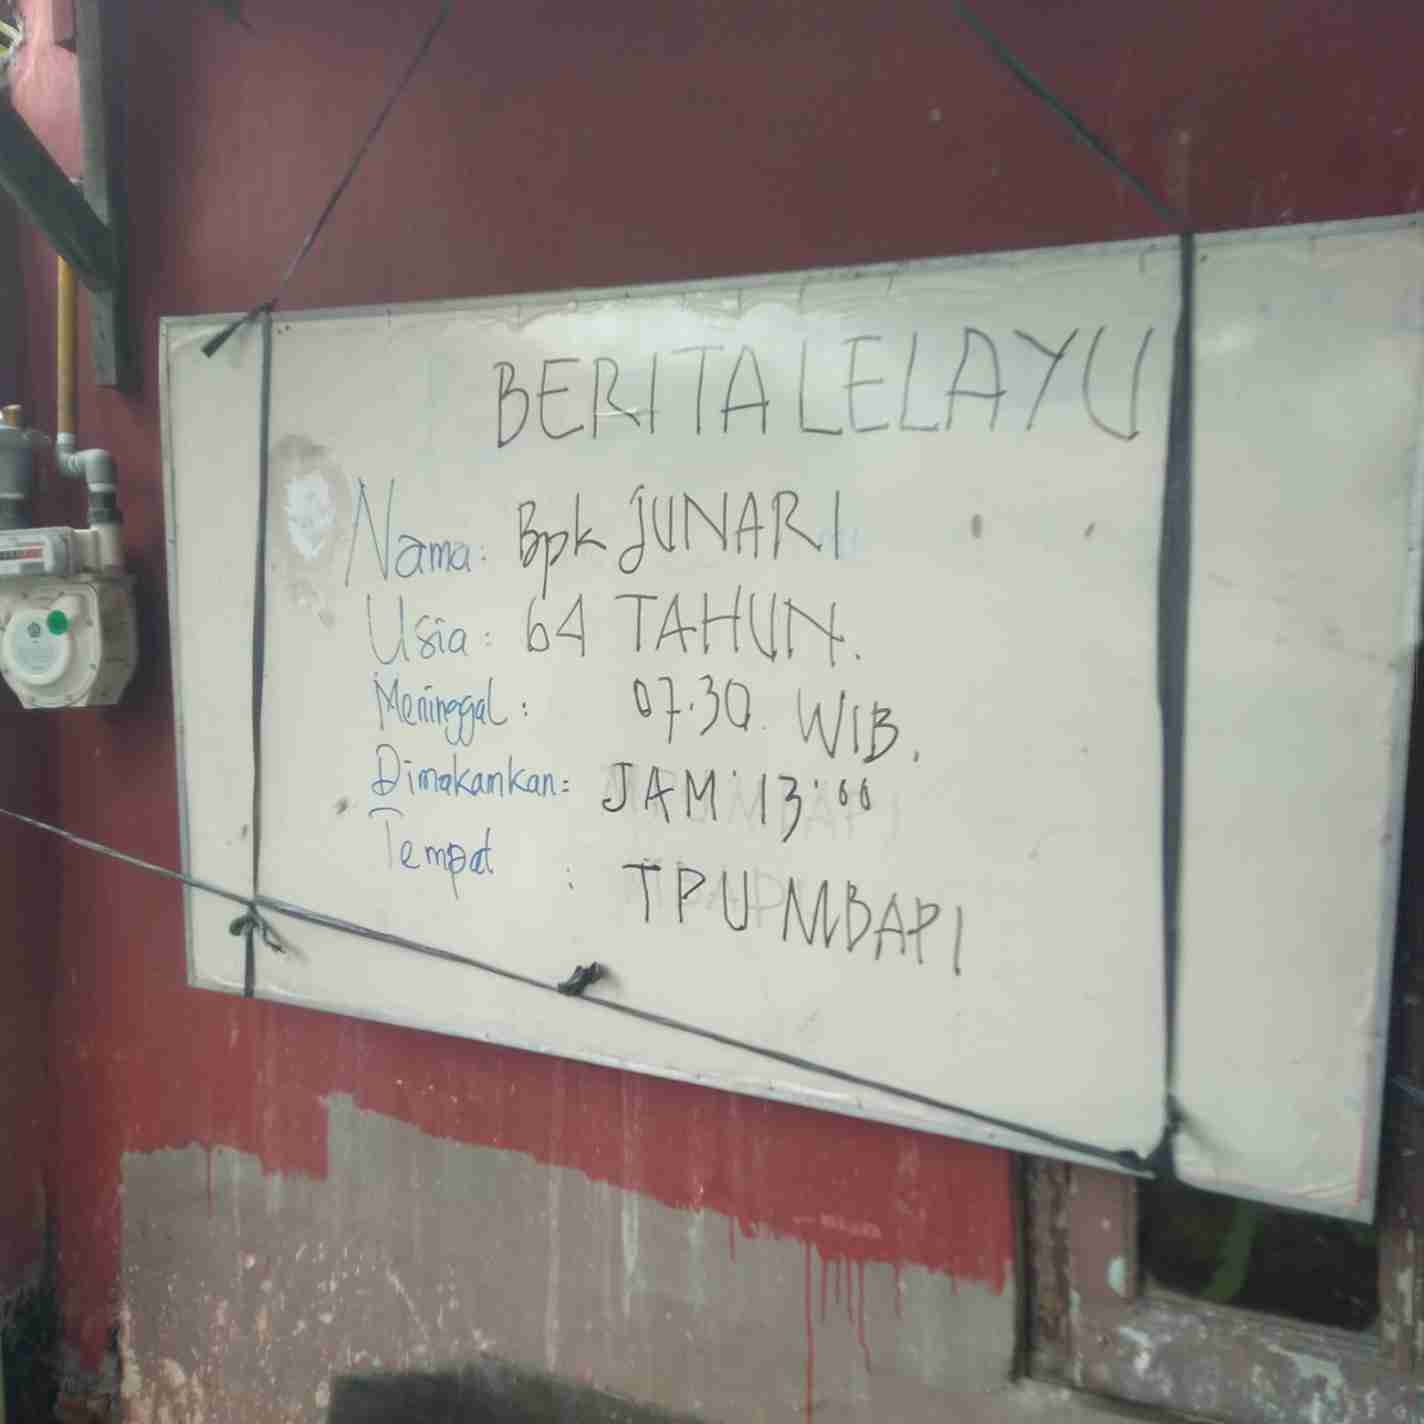 BERITA LELAYU
Nama: Bpk JUNARI
Usia: 64 TAHUN.
Meninggal: 07.30. WIB.
Dimakamkan: JAM 13:00
Tempat : TPU MBAPI